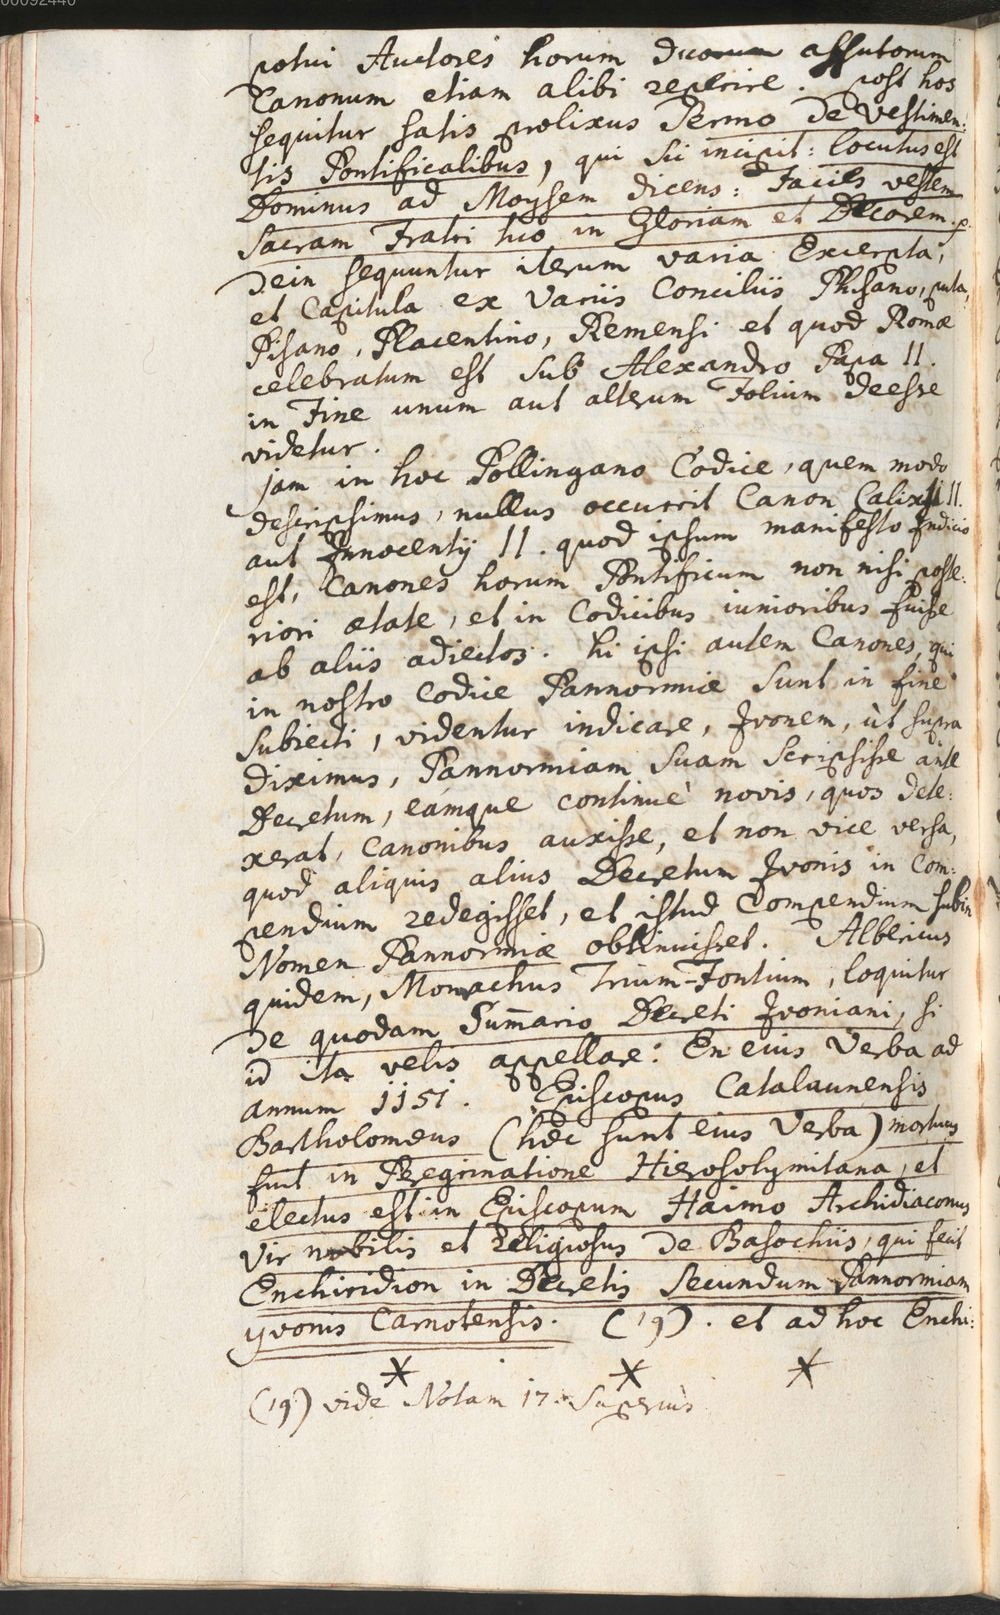 00092440
potui Auctores horum duorum assutorum
Canonum etiam alibi reperire. post hos
sequitur satis prolixus Sermo de Vestimen:
tis Pontificalibus, qui sic incipit: locutus est
Dominus ad Moysem dicens: Facies vestem
Sacram Fratri tuo in Gloriam et Decorem.
Dein sequuntur iterum varia Excerpta,
et Capitula ex Variis Conciliis Phisano, puta,
Pisano, Placentino, Remensi et quod Romæ
celebratum est sub Alexandro Papa II.
in Fine unum aut alterum Folium deesse
videtur.
jam in hoc Pollingano Codice, quem modo
descripsimus, nullus occurrit Canon Calixti II.
aut Innocentij II. quod ipsum manifesto Indicio
est, Canones horum Pontificum non nisi poste:
riori ætate, et in Codicibus iunioribus fuisse
ab aliis adiectos. hi ipsi autem Canones, qui
in nostro Codice Pannormiæ sunt in fine
subiecti, videntur indicare, Ivonem, ùt supra
diximus, Pannormiam suam scripsisse ante
Decretum, eámque continuè novis, quos dete:
xerat, Canonibus auxisse, et non vice versa,
quod aliquis alius Decretum Ivonis in Com:
pendium redegisset, et istud Compendium subin
Nomen Pannormiæ obtinuisset. Albericus
quidem, Monachus Trium-Fontium, loquitur
de quodam Sum̄ario Decreti Ivoniani, si
id ita velis appellare: En eius Verba ad
annum 1151. Episcopus Catalaunensis
Bartholomæus (hæc sunt eius Verba) mortuus
fuit in Peregrinatione Hierosolymitana, et
electus est in Episcopum Haimo Archidiaconus
Vir nobilis et religiosus de Basochiis, qui fecit
Enchiridion in Decretis secundum Pannormiam
yvonis Carnotensis. (19). et ad hoc Enchi:
(19) vide Notam 17. Superius